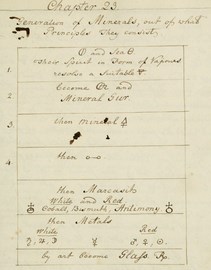 Chapter 23.
Generation of Minerals, out of what
Principles They consist.
☉ and Sea
whose Spirit in Form of Vapours
resolve a Suitable
1.
become and
2.
Mineral Gur.
3.
then mineral 🜍
4.
then
then Marcasit
White and Red
♁ Cobalt, Bismuth, Antimony ♁
then Metals
White Red
by art become Glass.